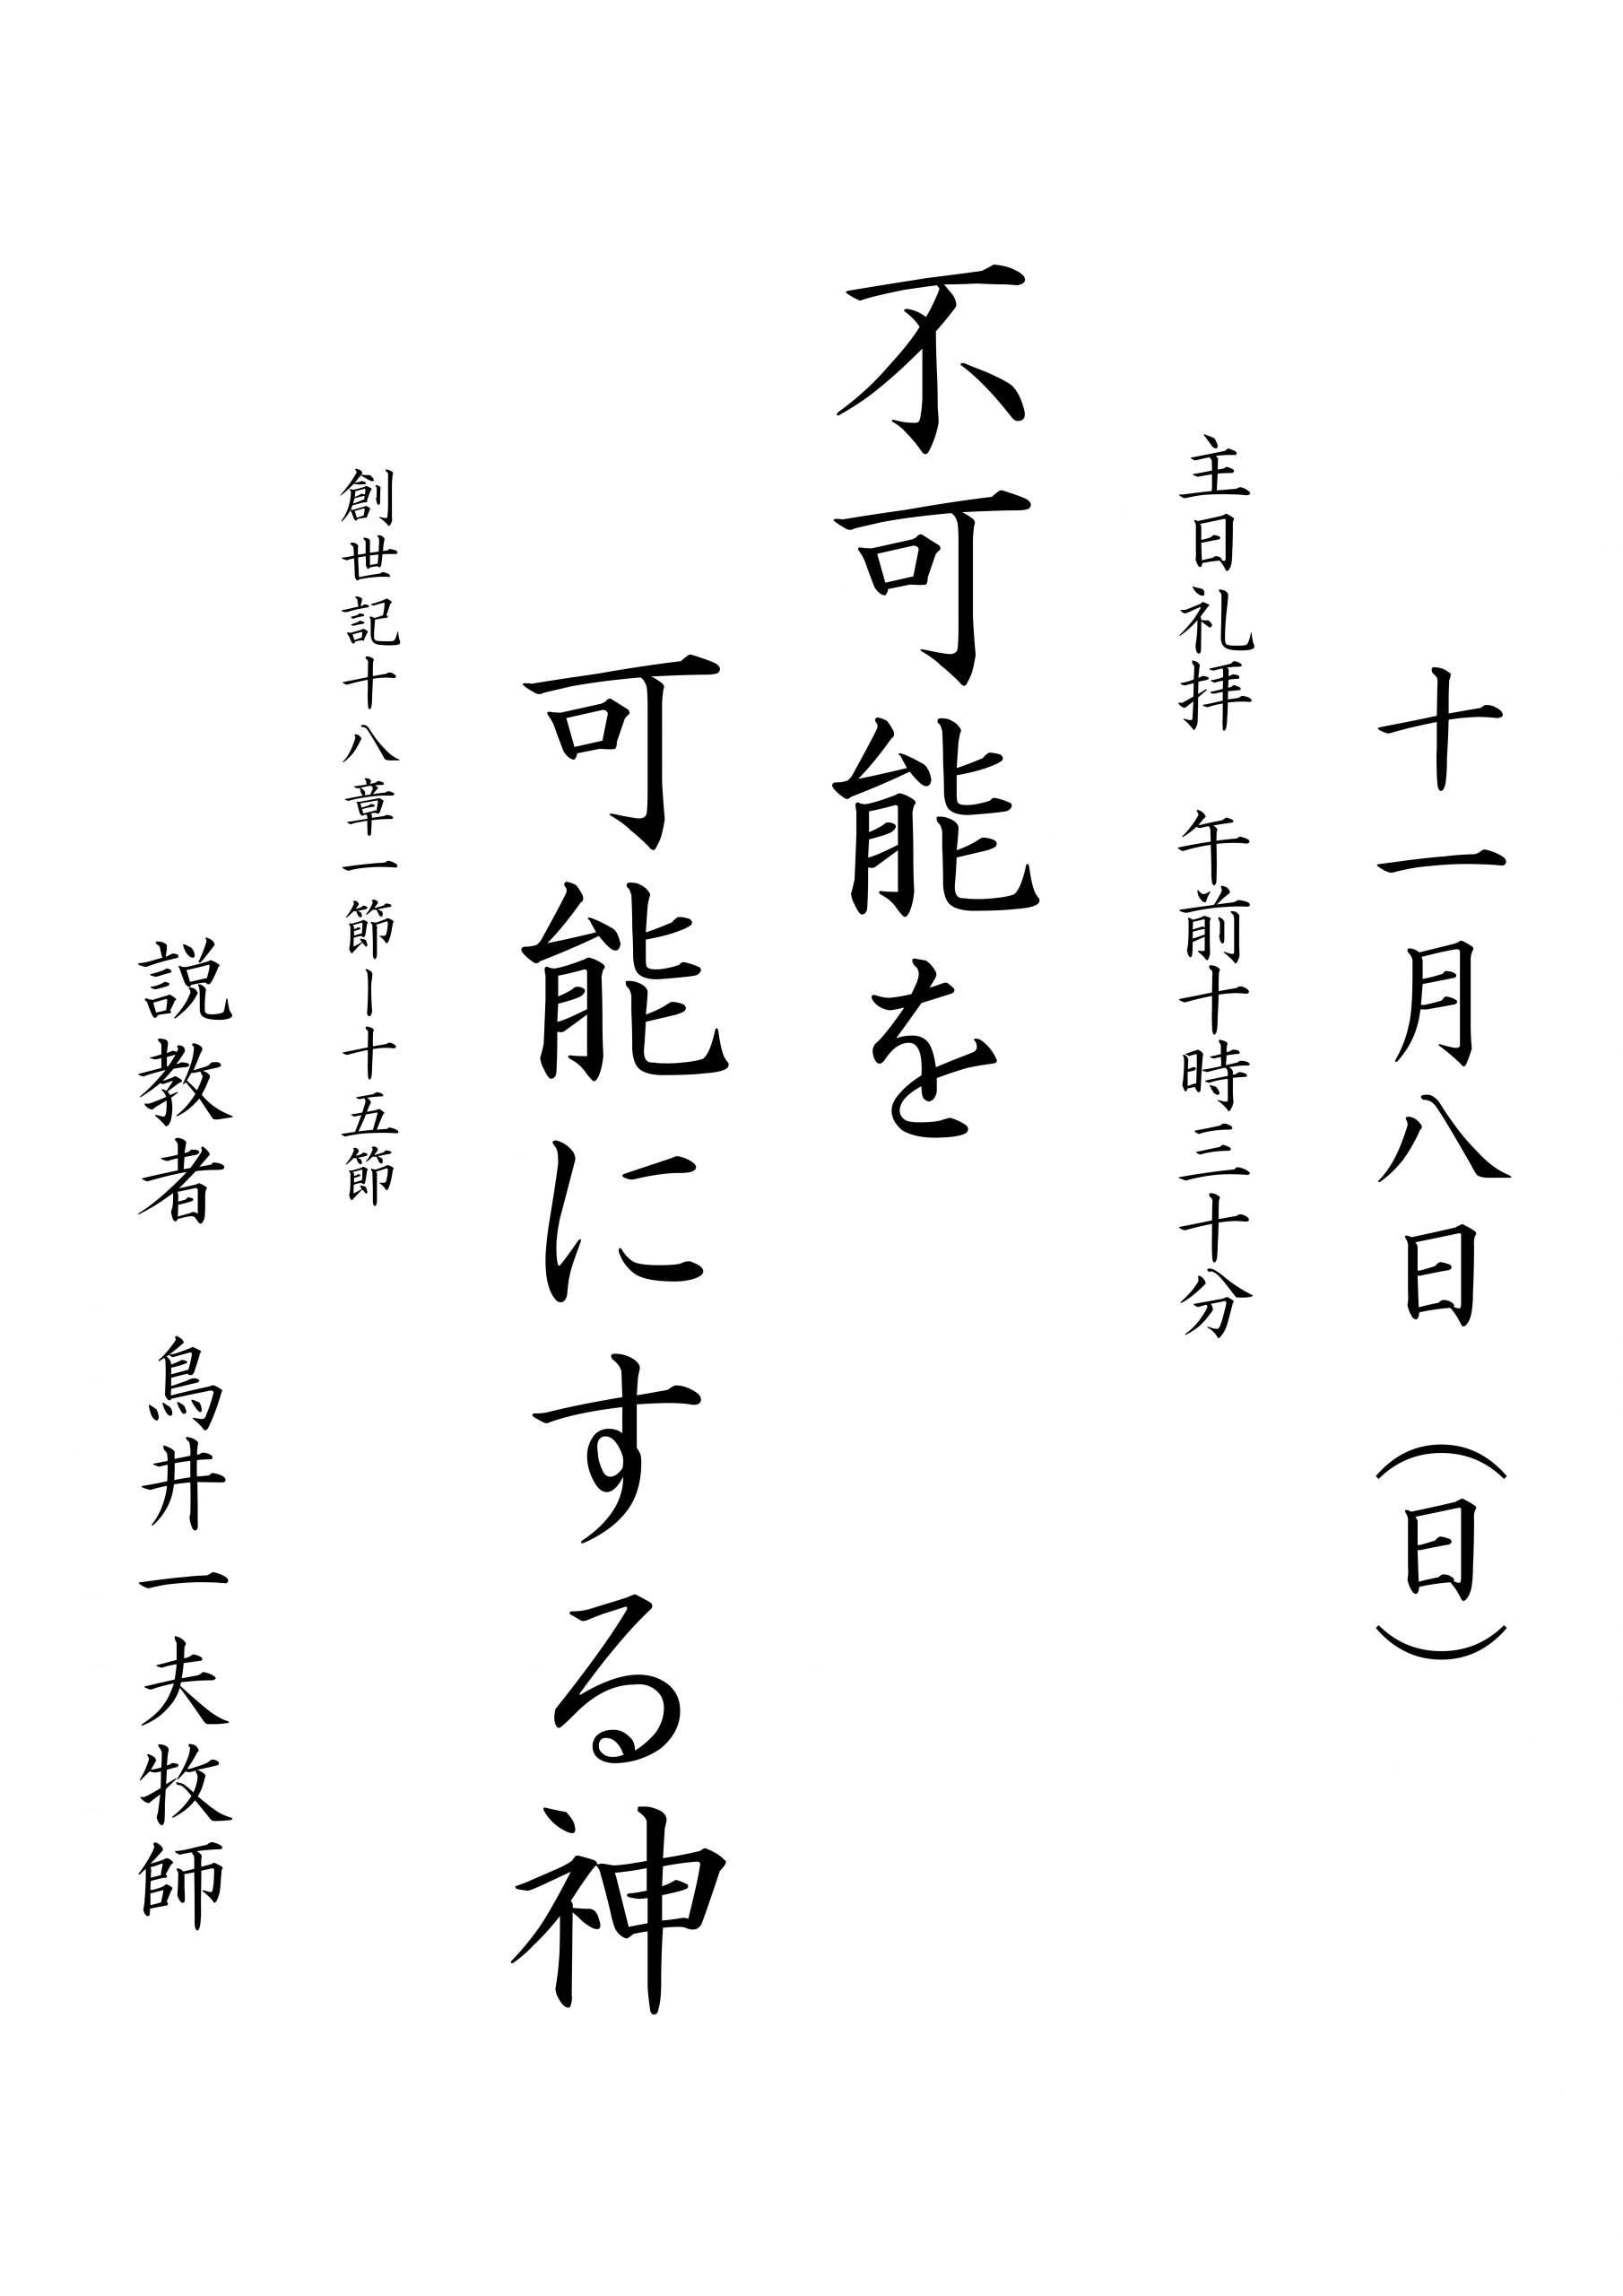 十一月八日（日）
主日礼拝　午前十時三十分
不可能を
可能にする神
創世記十八章一節ー十五節
説教者　鳥井一夫牧師